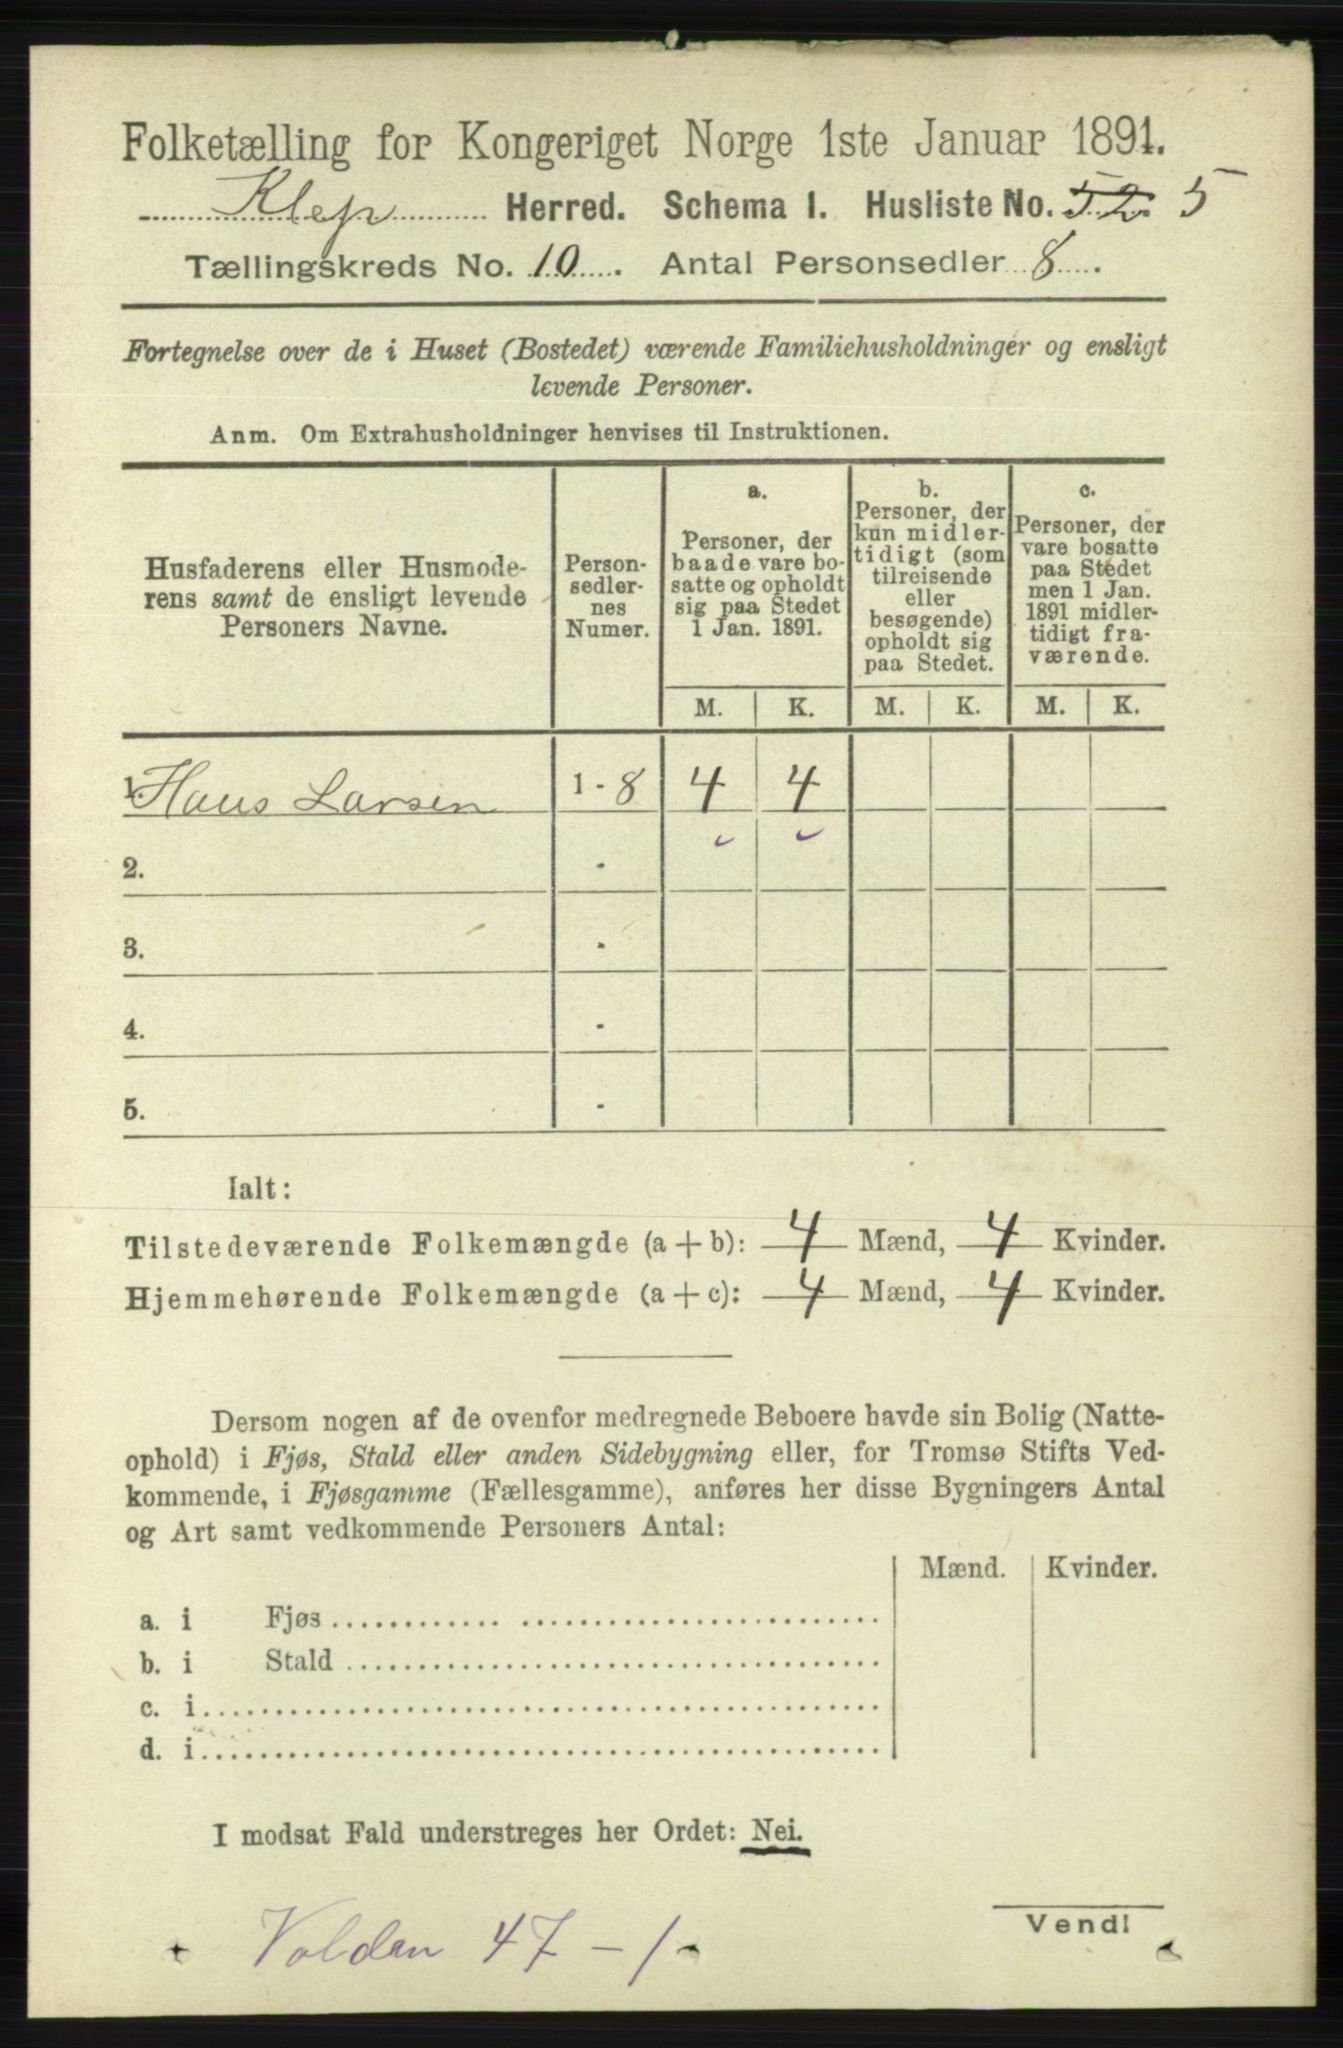 Folketælling for Kongeriget Norge 1ste Januar 1891.
Klep Herred. Schema 1. Husliste No. 52. 5
Tællingskreds No. 10. Antal Personsedler 8.
Fortegnelse over de i Huset (Bostedet) værende Familiehusholdninger og ensligt
levende Personer.
Anm. Om Extrahusholdninger henvises til Instruktionen.
Husfaderens eller Husmode-
rens samt de ensligt levende
Personers Navne.
Person-
sedler-
nes
Numer.
a.
Personer, der
baade vare bo-
satte og opholdt
sig paa Stedet
1 Jan. 1891.
b.
Personer, der
kun midler-
tidigt (som
tilreisende
eller
besøgende)
opholdt sig
paa Stedet.
c.
Personer, der
vare bosatte
paa Stedet
men 1 Jan.
1891 midler-
tidigt fra-
værende.
M. K. M. K. M. K.
1. Hans Larsen 1 - 8 4 4
2. -
3. -
4. -
5. -
Ialt:
Tilstedeværende Folkemængde (a + b): 4 Mænd, 4 Kvinder.
Hjemmehørende Folkemængde (a + c): 4 Mænd, 4 Kvinder.
Dersom nogen af de ovenfor medregnede Beboere havde sin Bolig (Natte-
ophold) i Fjøs, Stald eller anden Sidebygning eller, for Tromsø Stifts Ved-
kommende, i Fjøsgamme (Fællesgamme), anføres her disse Bygningers Antal
og Art samt vedkommende Personers Antal:
Mænd. Kvinder.
a. i Fjøs
b. i Stald
c. i
d. i
I modsat Fald understreges her Ordet: Nei.
Vend!
Volden 47 - 1